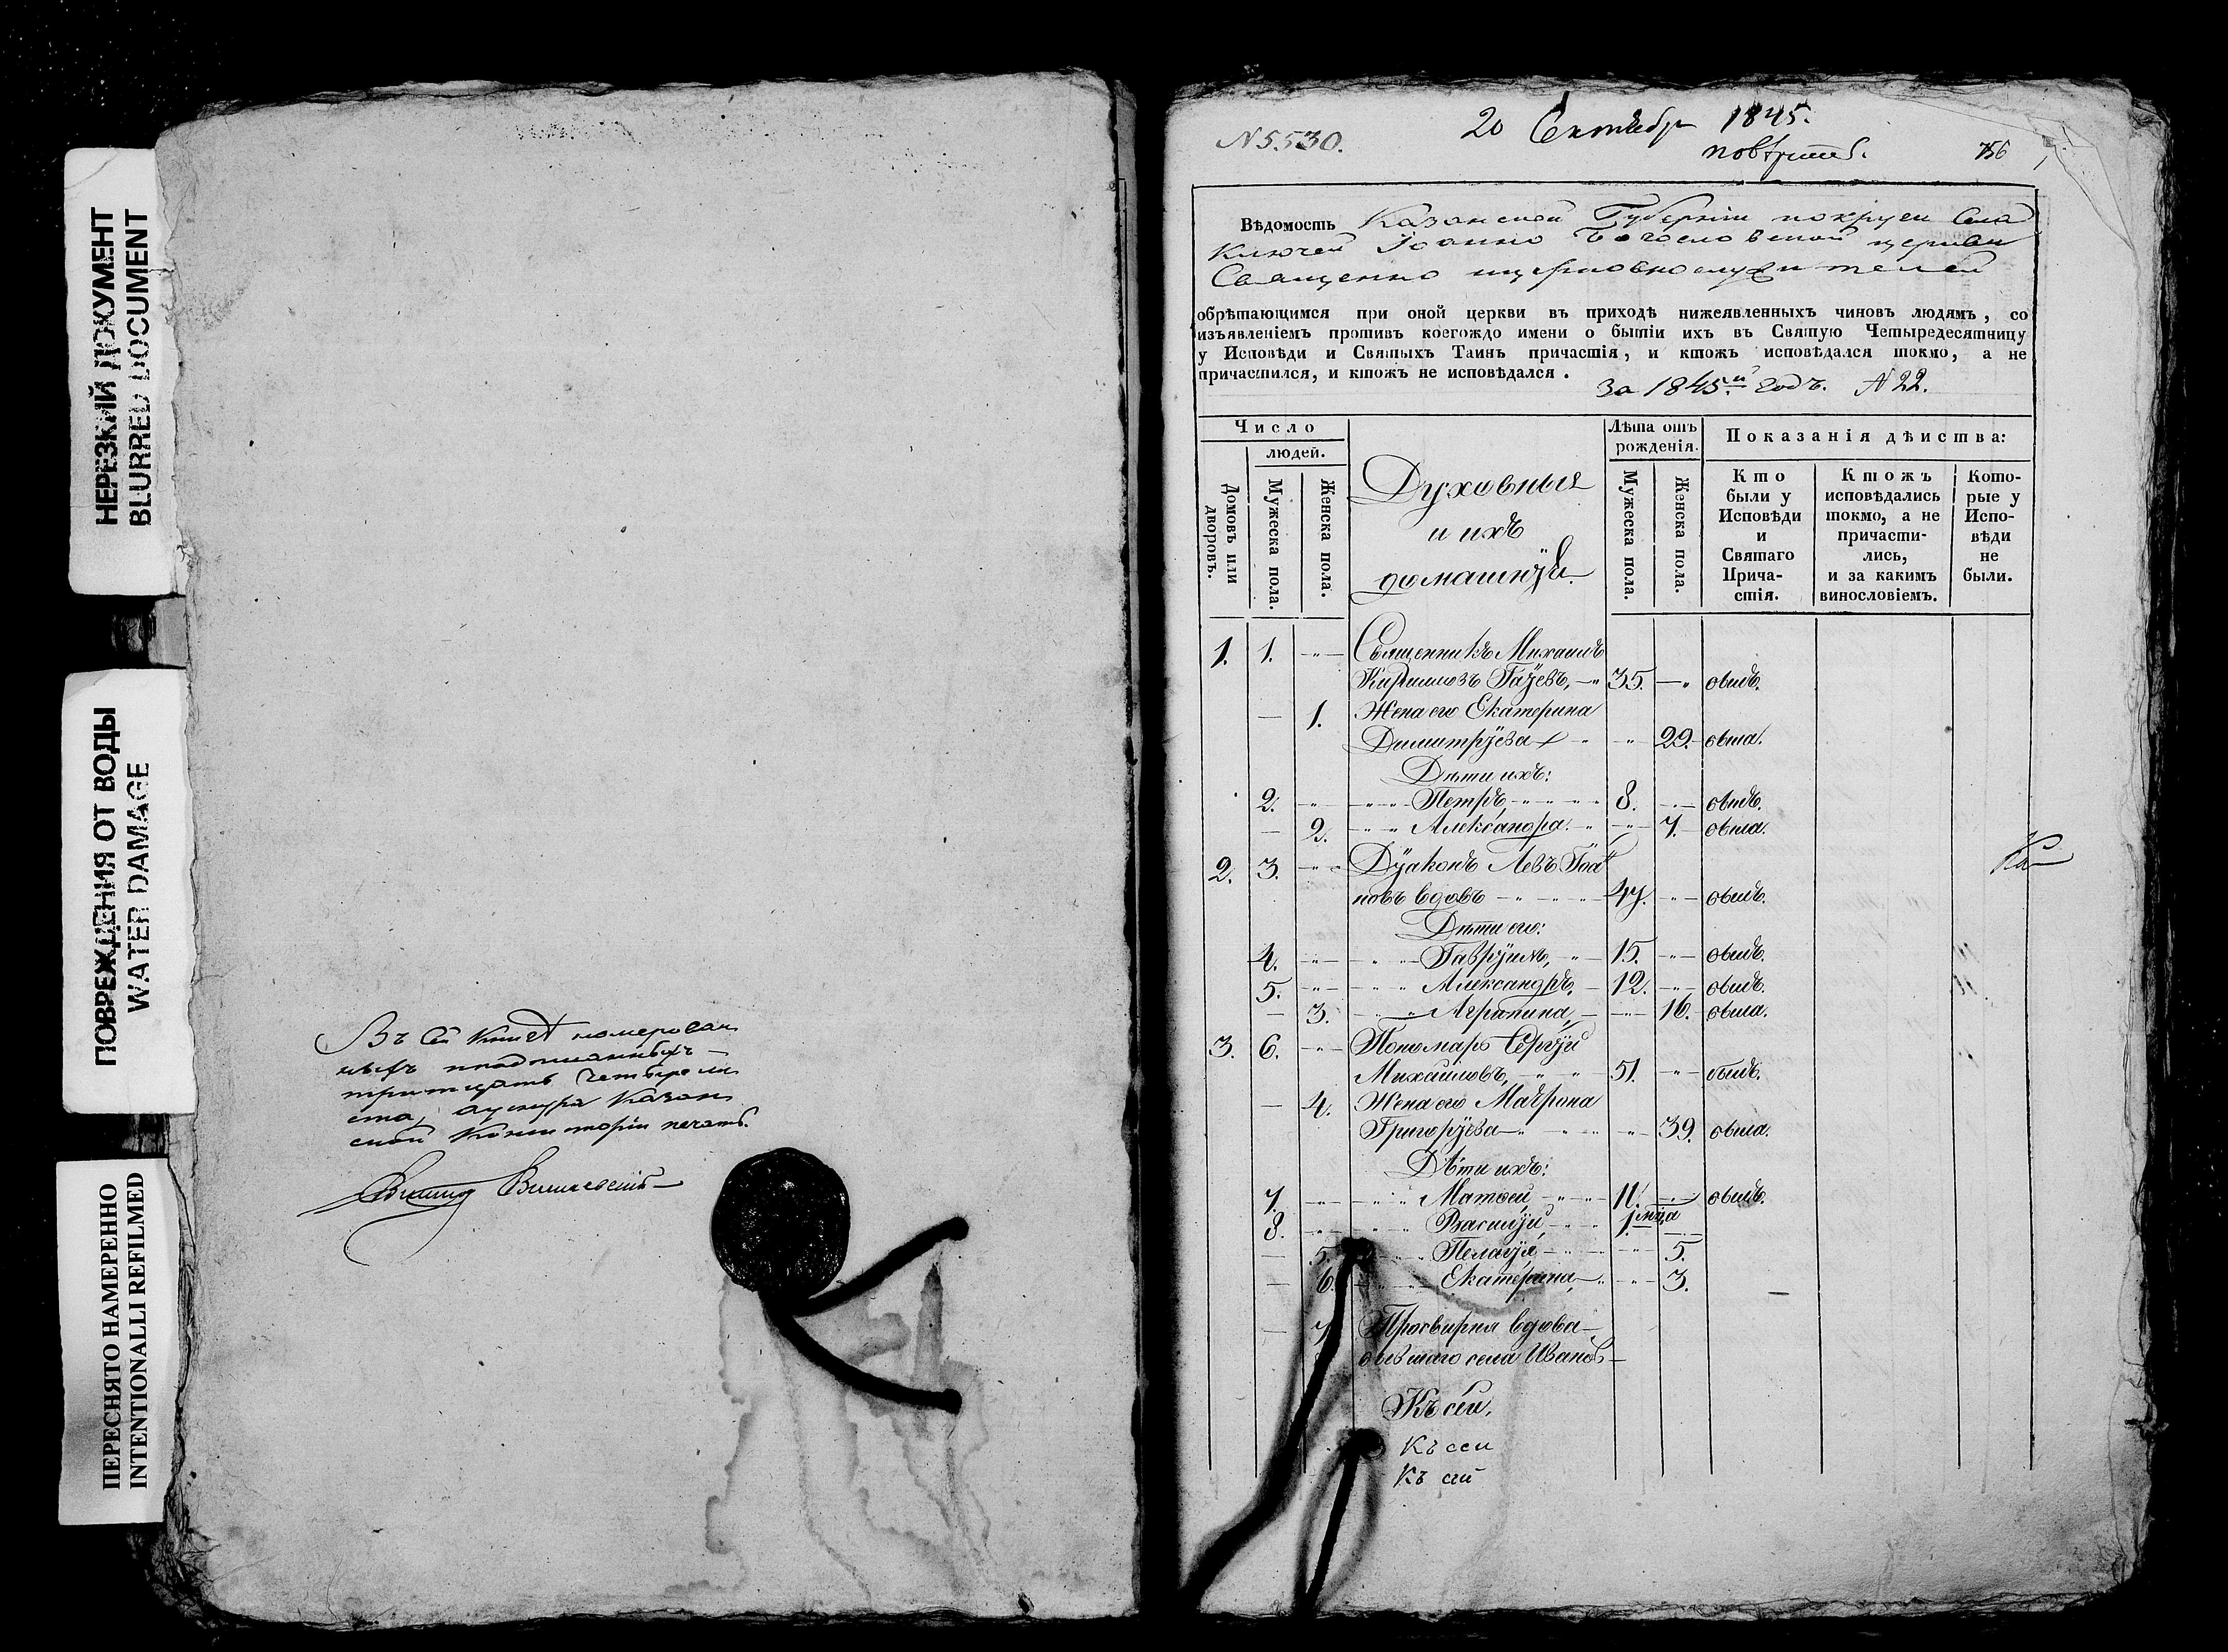 НЕРЕЗКИЙ ДОКУМЕНТ
BLURRED DOCUMENT
ПОВРЕЖДЕНИЯ ОТ ВОДЫ
WATER DAMAGE
ПЕРЕСНЯТО НАМЕРЕННО
INTENTIONALLI REFILMED
Въ сей книгѣ номерован
тритцать четыре ли
ста, Казан
ской Консисторіи печать.
N 5530.
20 Сентября 1845.
756
Вѣдомость Казанской Губерніи Села
Ключей Іоанно Богословской церкви
Священно церковнослужителей
обрѣтающимся при оной церкви въ приходѣ нижеявленныхъ чиновъ людямъ, со
изъявленіемъ противъ коегождо имени о бытіи ихъ въ Святую Четыредесятницу
у Исповѣди и Святыхъ Таинъ причастія, и ктожъ исповѣдался токмо, а не
причастился, и ктожъ не исповѣдался.
За 1845й годъ. N 22.
Число
людей.
Домовъ или дворовъ.
Мужеска пола.
Женска пола.
Духовныя
и ихъ
домашнїи.
Лѣта отъ
рожденія.
Мужеска пола.
Женска пола.
Показанія дѣиства:
Кто
были у
Исповѣди
и
Святаго
Прича-
стія.
Ктожъ
исповѣдались
токмо, а не
причасти-
лись,
и за какимъ
винословіемъ.
Кото-
рые у
Испо-
вѣди
не
были.
1. 1. Священникъ Михаилъ
Кирилловъ 35. – " былъ.
1. Жена его Екатерина
Димитрїева 29. была.
Дѣти ихъ:
2. Петръ, 8. былъ.
2. Александра 7. была.
2. 3. Дїаконъ Левъ Іоан
новъ вдовъ 47. былъ.
Дѣти его:
4. Гаврїилъ, 15. былъ.
5. Александръ, 12. былъ.
3. Агрипина, 16. была.
3. 6. Пономарь Сергїй
Михайловъ, 51. былъ.
4. Жена его Маѵрона
Григорїева 39. была.
Дѣти ихъ:
7. Матѳей, 11. былъ.
8. Василїй, 1. мѣсца
5. Пелагїя, 5.
6. Екатерина, 3.
7. Просвирня вдова
бывшаго села Иванов
Къ сей,
Къ сей
Къ сей